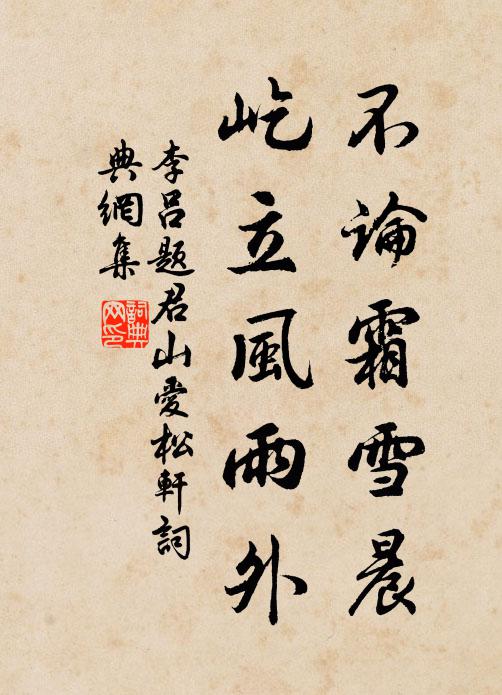 不論霜雪晨
屹立風雨外
李呂題君山愛松軒詞
典網集
詞典
网印